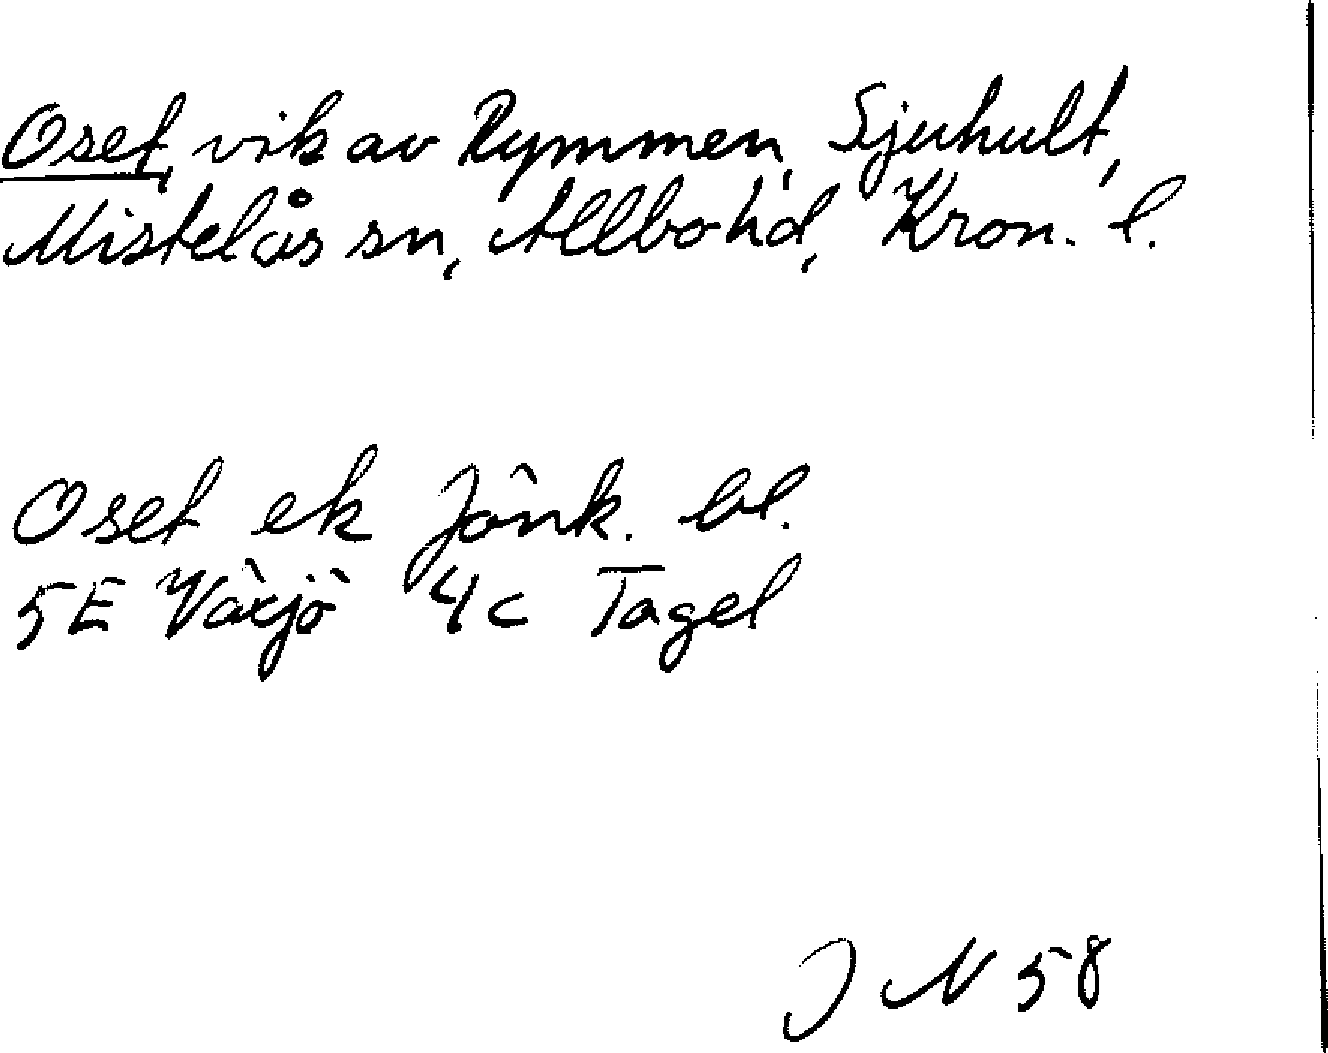 Oset, vik av Rymmen, Sjuhult,
Mistelås sn, Allbo hd, Kron. l.
Oset ek Jönk. bl.
5E Växjö 4c Tagel
J N 58